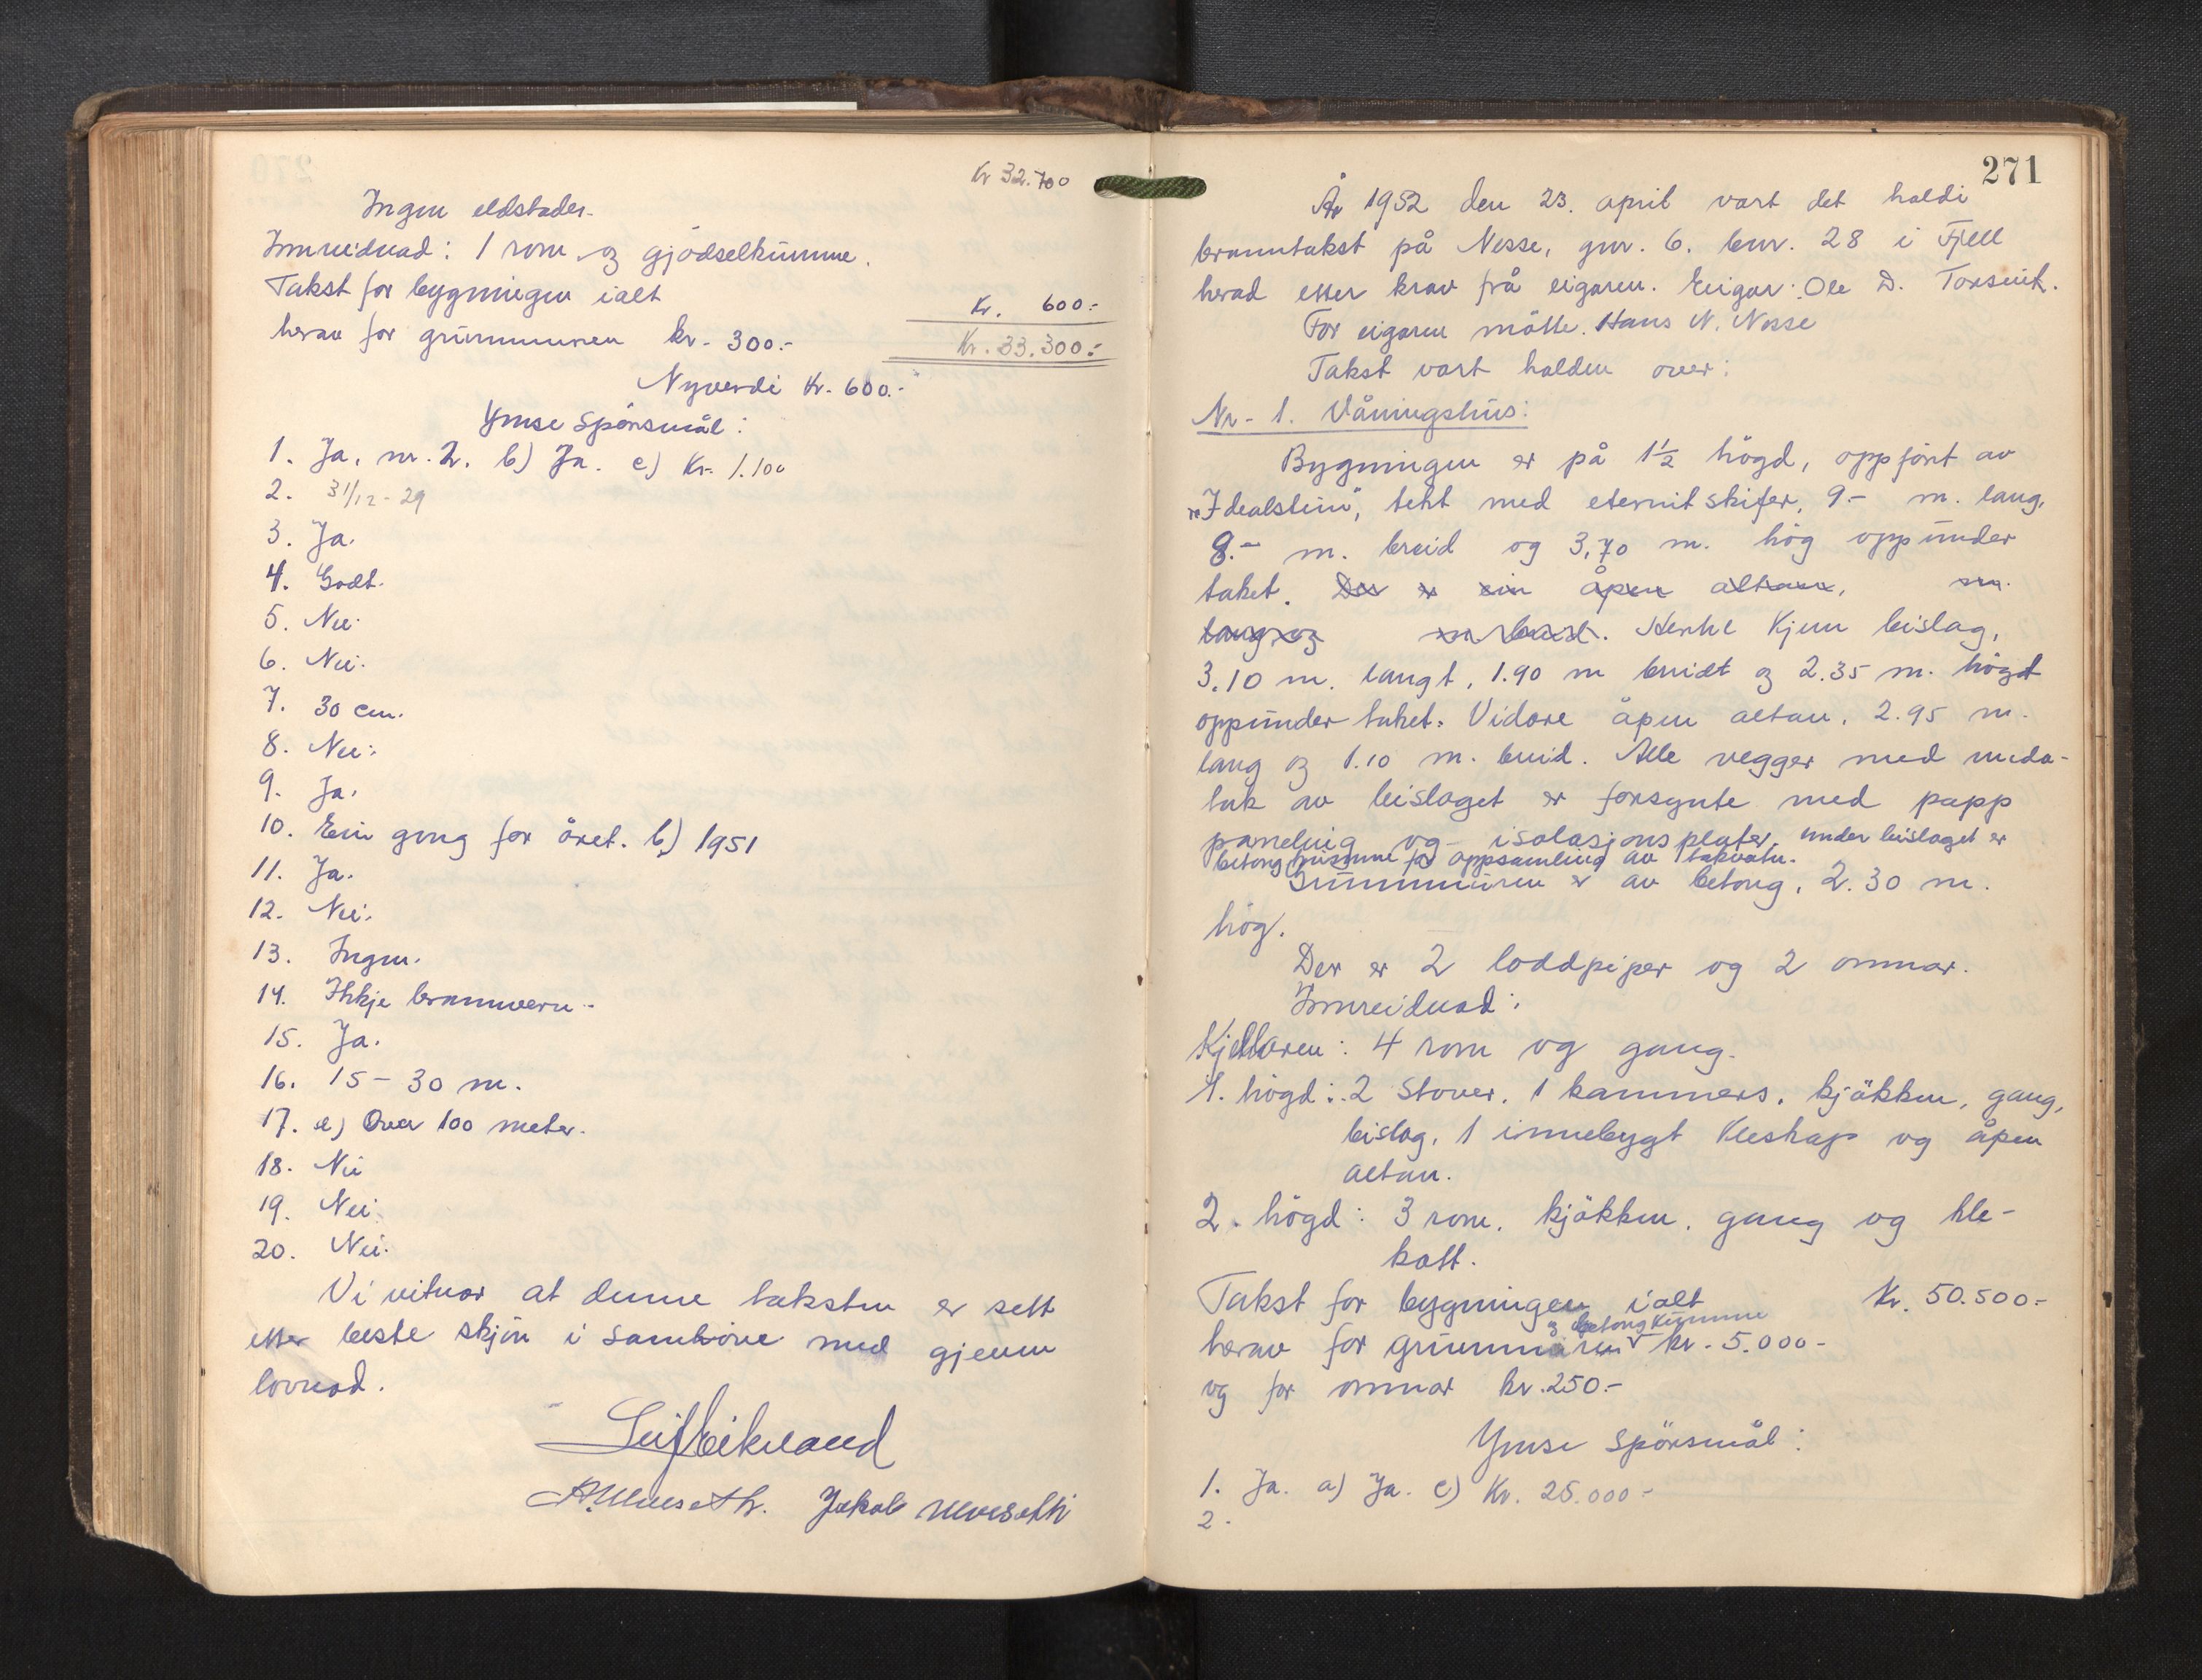 Kr 32.700
Ingen eldstader.
Innreidnad: 1 rom og gjödselkumme.
Takst for bygningen ialt
Kr. 600.-
herav for grunnmuren kr. 300.-
Kr. 33.300.-
Nyverdi Kr. 600.-
Ymse spörsmål:
1. Ja, nr. 2. b) Ja. c) Kr. 1.100
2. 31/12-29
3. Ja.
4. Godt.
5. Nei.
6. Nei.
7. 30 cm.
8. Nei.
9. Ja.
10. Ein gong for året. b) 1951
11. Ja.
12. Nei.
13. Ingen.
14. Ikkje brannvern.
15. Ja.
16. 15-30 m.
17. e) Over 100 meter.
18. Nei
19. Nei.
20. Nei.
Vi vitnar at denne taksten er sett
etter beste skjön i samhöve med gjeven
lovnad.
Jakob
271
År 1952 den 23. april vart det haldi
branntakst på Nesse, gnr. 6. bnr. 28 i Fjell
herad etter krav frå eigaren. Eigar: Ole D. Torsvik.
For eigaren mötte. Hans N. Nesse
Takst vart halden over:
Nr. 1. Våningshus:
Bygningen er på 1½ högd, oppfört av
"Idealstein", tekt med eternitskifer, 9.- m. lang,
8.- m. breid og 3,70 m. hög oppunder
taket. Der er ein åpen altan, m.
lang og m breid. Herhl Kjem bislag,
3.10 m. langt, 1.90 m breidt og 2.35 m. högt
oppunder taket. Vidare åpen altan, 2.95 m.
lang og 1.10 m. breid. Alle vegger med unda-
tak av bislaget er forsynte med papp
paneling og isolasjonsplater, under bislaget er
betong kumme for oppsamling av takvatn.
Grunnmuren er av betong, 2.30 m.
hög.
Der er 2 loddpiper og 2 omnar.
Innreidnad:
Kjellaren: 4 rom og gang.
1. högd: 2 stover, 1 kammers, kjökken, gang,
bislag, 1 innebygt kleskap og åpen
altan.
2. högd: 3 rom, kjökken, gang og kle-
kott.
Takst for bygningen ialt Kr. 50.500.-
og betong kumme
herav for grunnmuren kr. 5.000-
og for omnar kr. 250.-
Ymse spörsmål:
1. Ja. a) Ja. c) Kr. 25.000-
2.